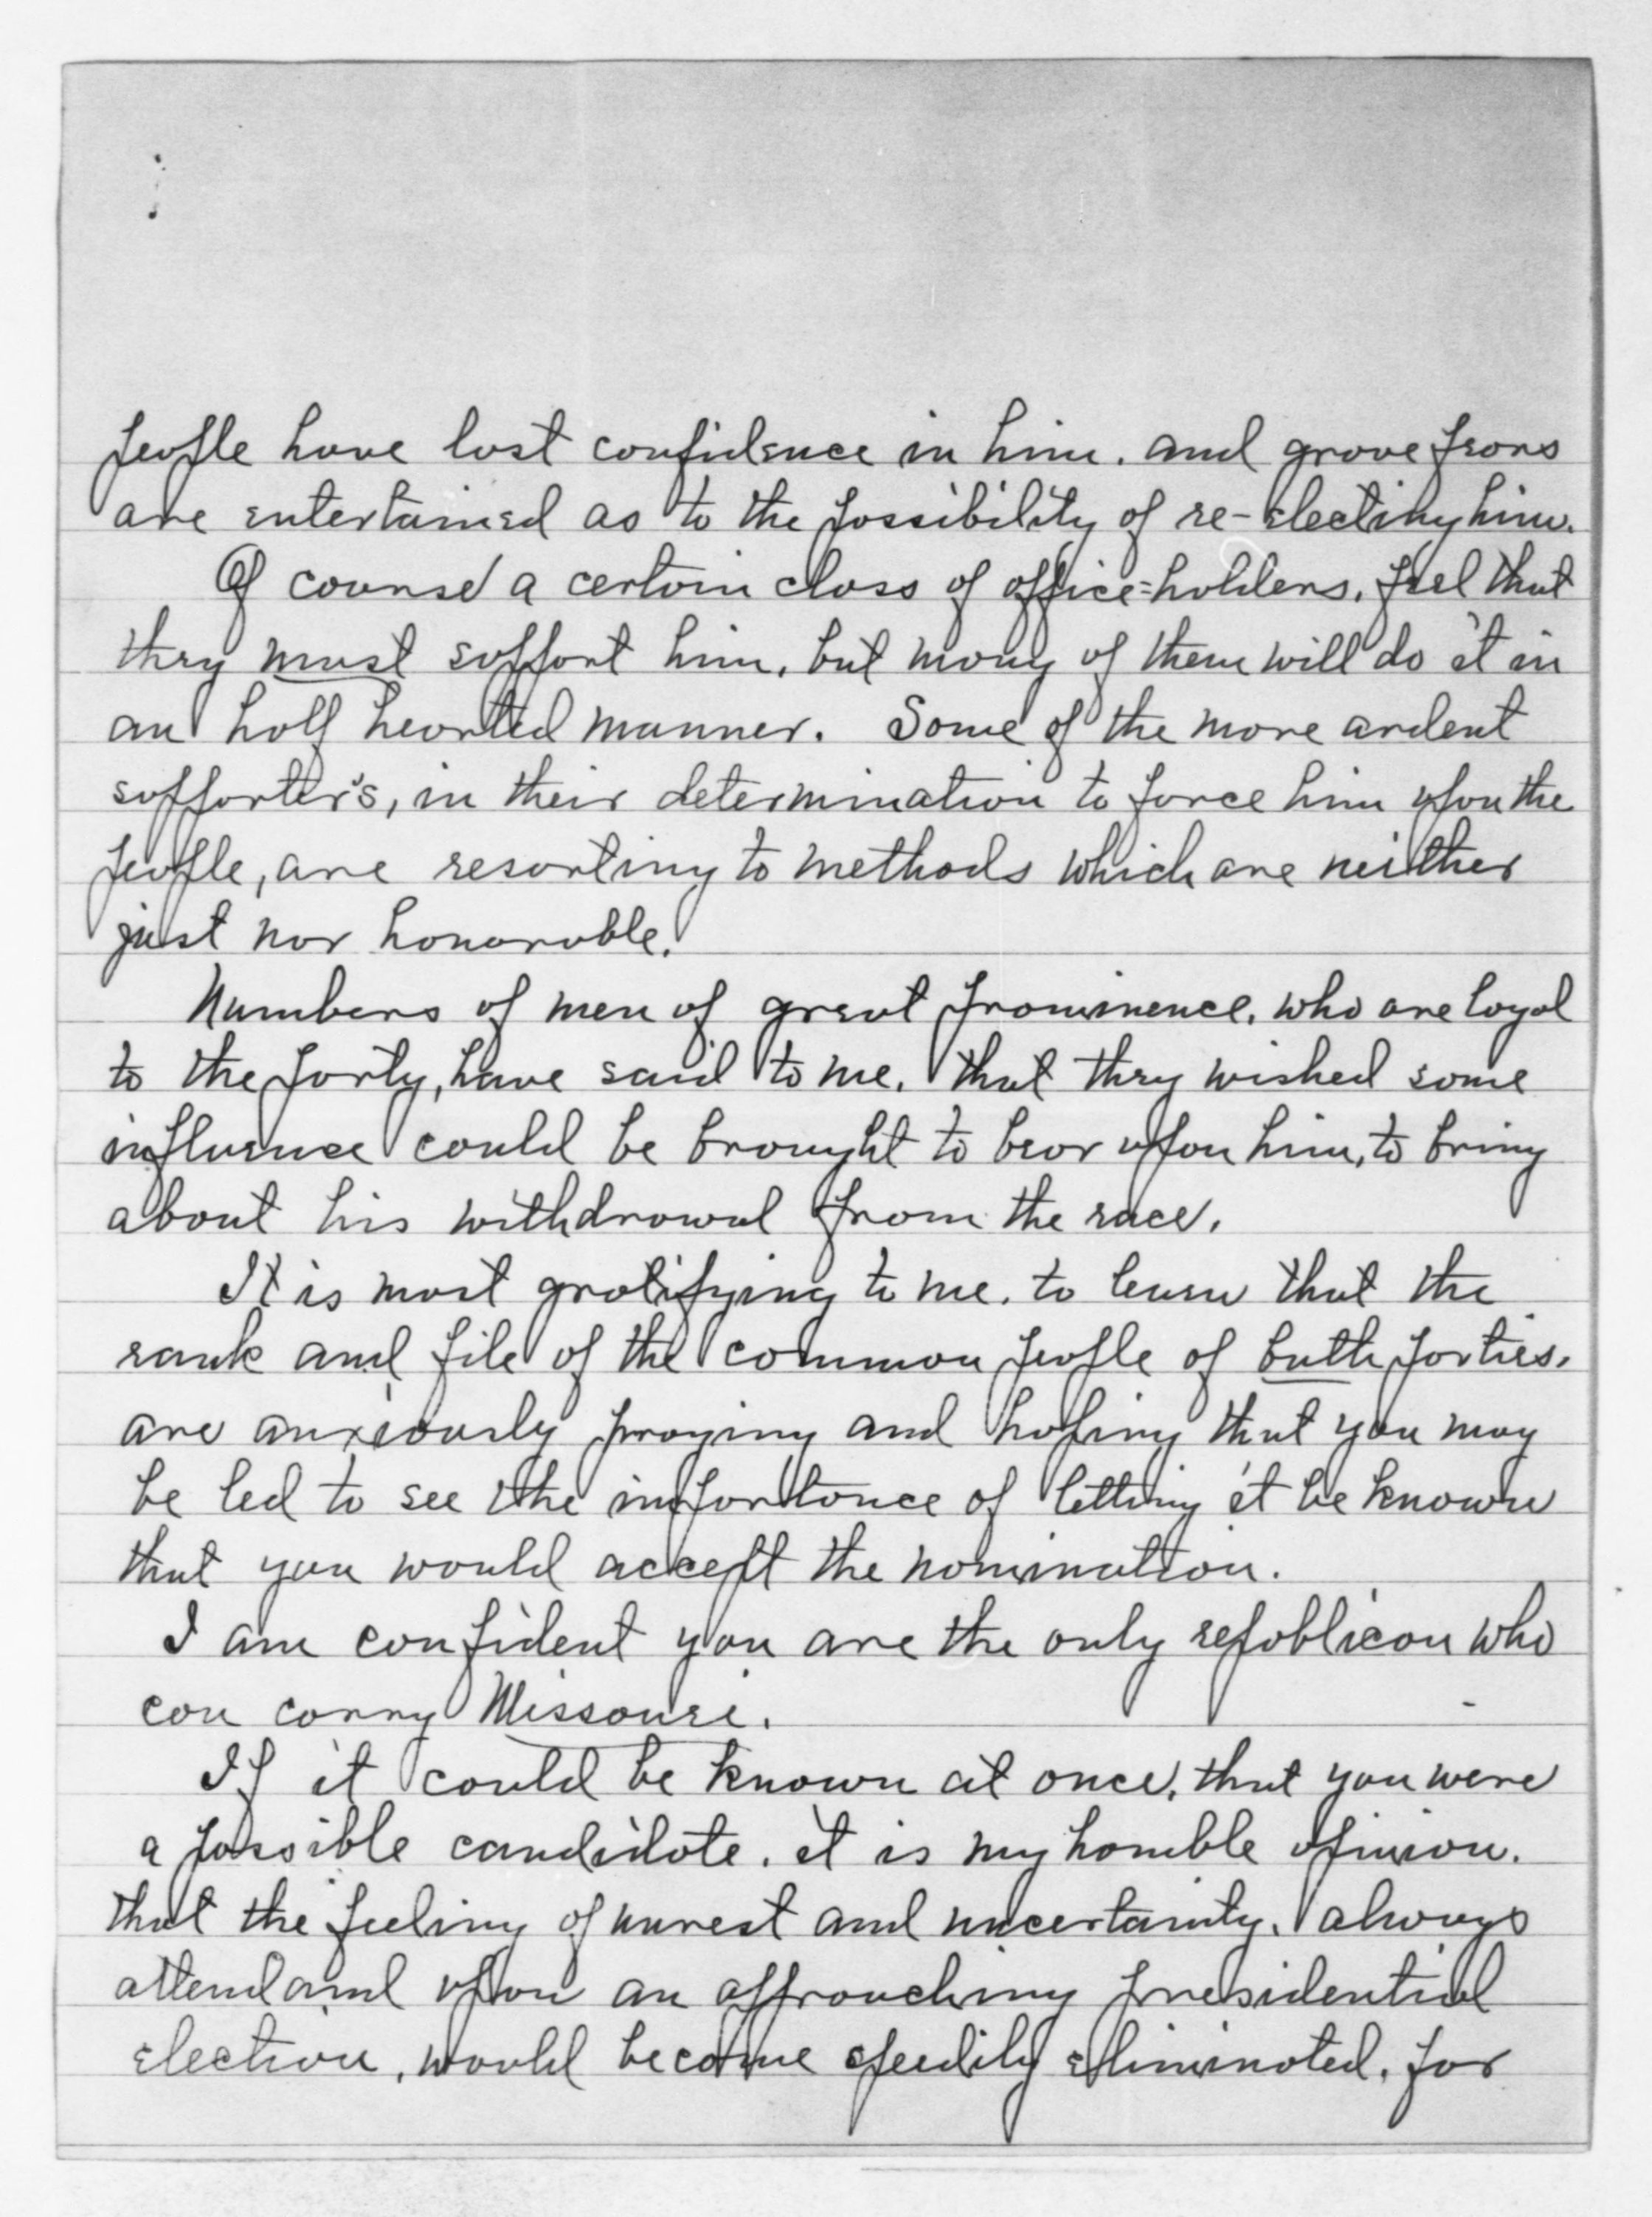 people have lost confidence in him. and grave fears
are entertained as to the possibility of re-electing him.
Of course a certain class of office=holders, feel that
they must support him, but many of them will do it in
an half hearted manner. Some of the more ardent
supporter's, in their determination to force him upon the
people, are resorting to methods which are neither
just nor honorable.
Numbers of men of great prominence, who are loyal
to the party, have said to me, that they wished some
influence could be brought to bear upon him, to bring
about his withdrawal from the race.
It is most gratifying to me, to learn that the
rank and file of the common people of both parties,
are anxiously praying and hoping that you may
be led to see the importance of letting it be known
that you would accept the nomination.
I am confident you are the only republican who
can carry Missouri.
If it could be known at once, that you were
a possible candidate, it is my humble opinion,
that the feeling of unrest and uncertainty, always
attendand upon an approaching presidential
election, would become speedily eliminated, for